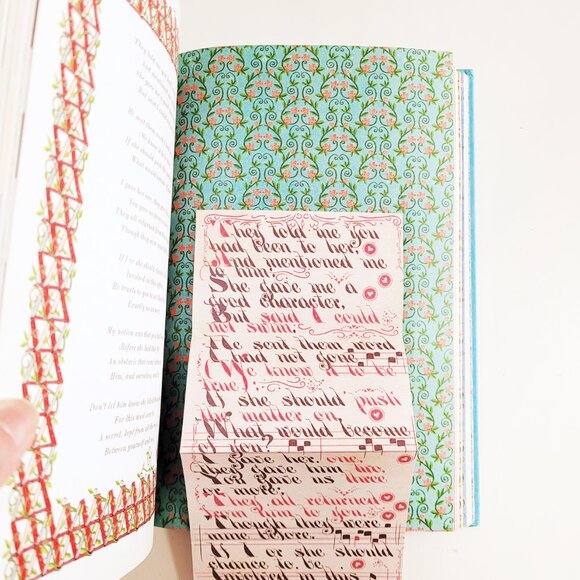 "They told me you
She gave me
But said I
He sent them
(We know
If she should push
What would
I gave her one, they
You gave us
They all returned from
Though they were
If I or she should
Involved in this
He trusts to you to set
Exactly as
My notion was that you
(Before she had this fit)
An obstacle that came
Him, and ourselves, and
Don't let him know she liked them
For this must ever be
A secret, kept from all the
Between yourself and me."
They told me you
had been to her,
And mentioned me
to him:
She gave me a
good character,
But said I could
not swim.
He sent them word
I had not gone
(We know it to be
true):
If she should push
the matter on,
What would become
of you?
one,
they gave him two,
You gave us three
or more;
They all returned
from him to you,
Though they were
mine before.
If I or she should
chance to be
Involved in this